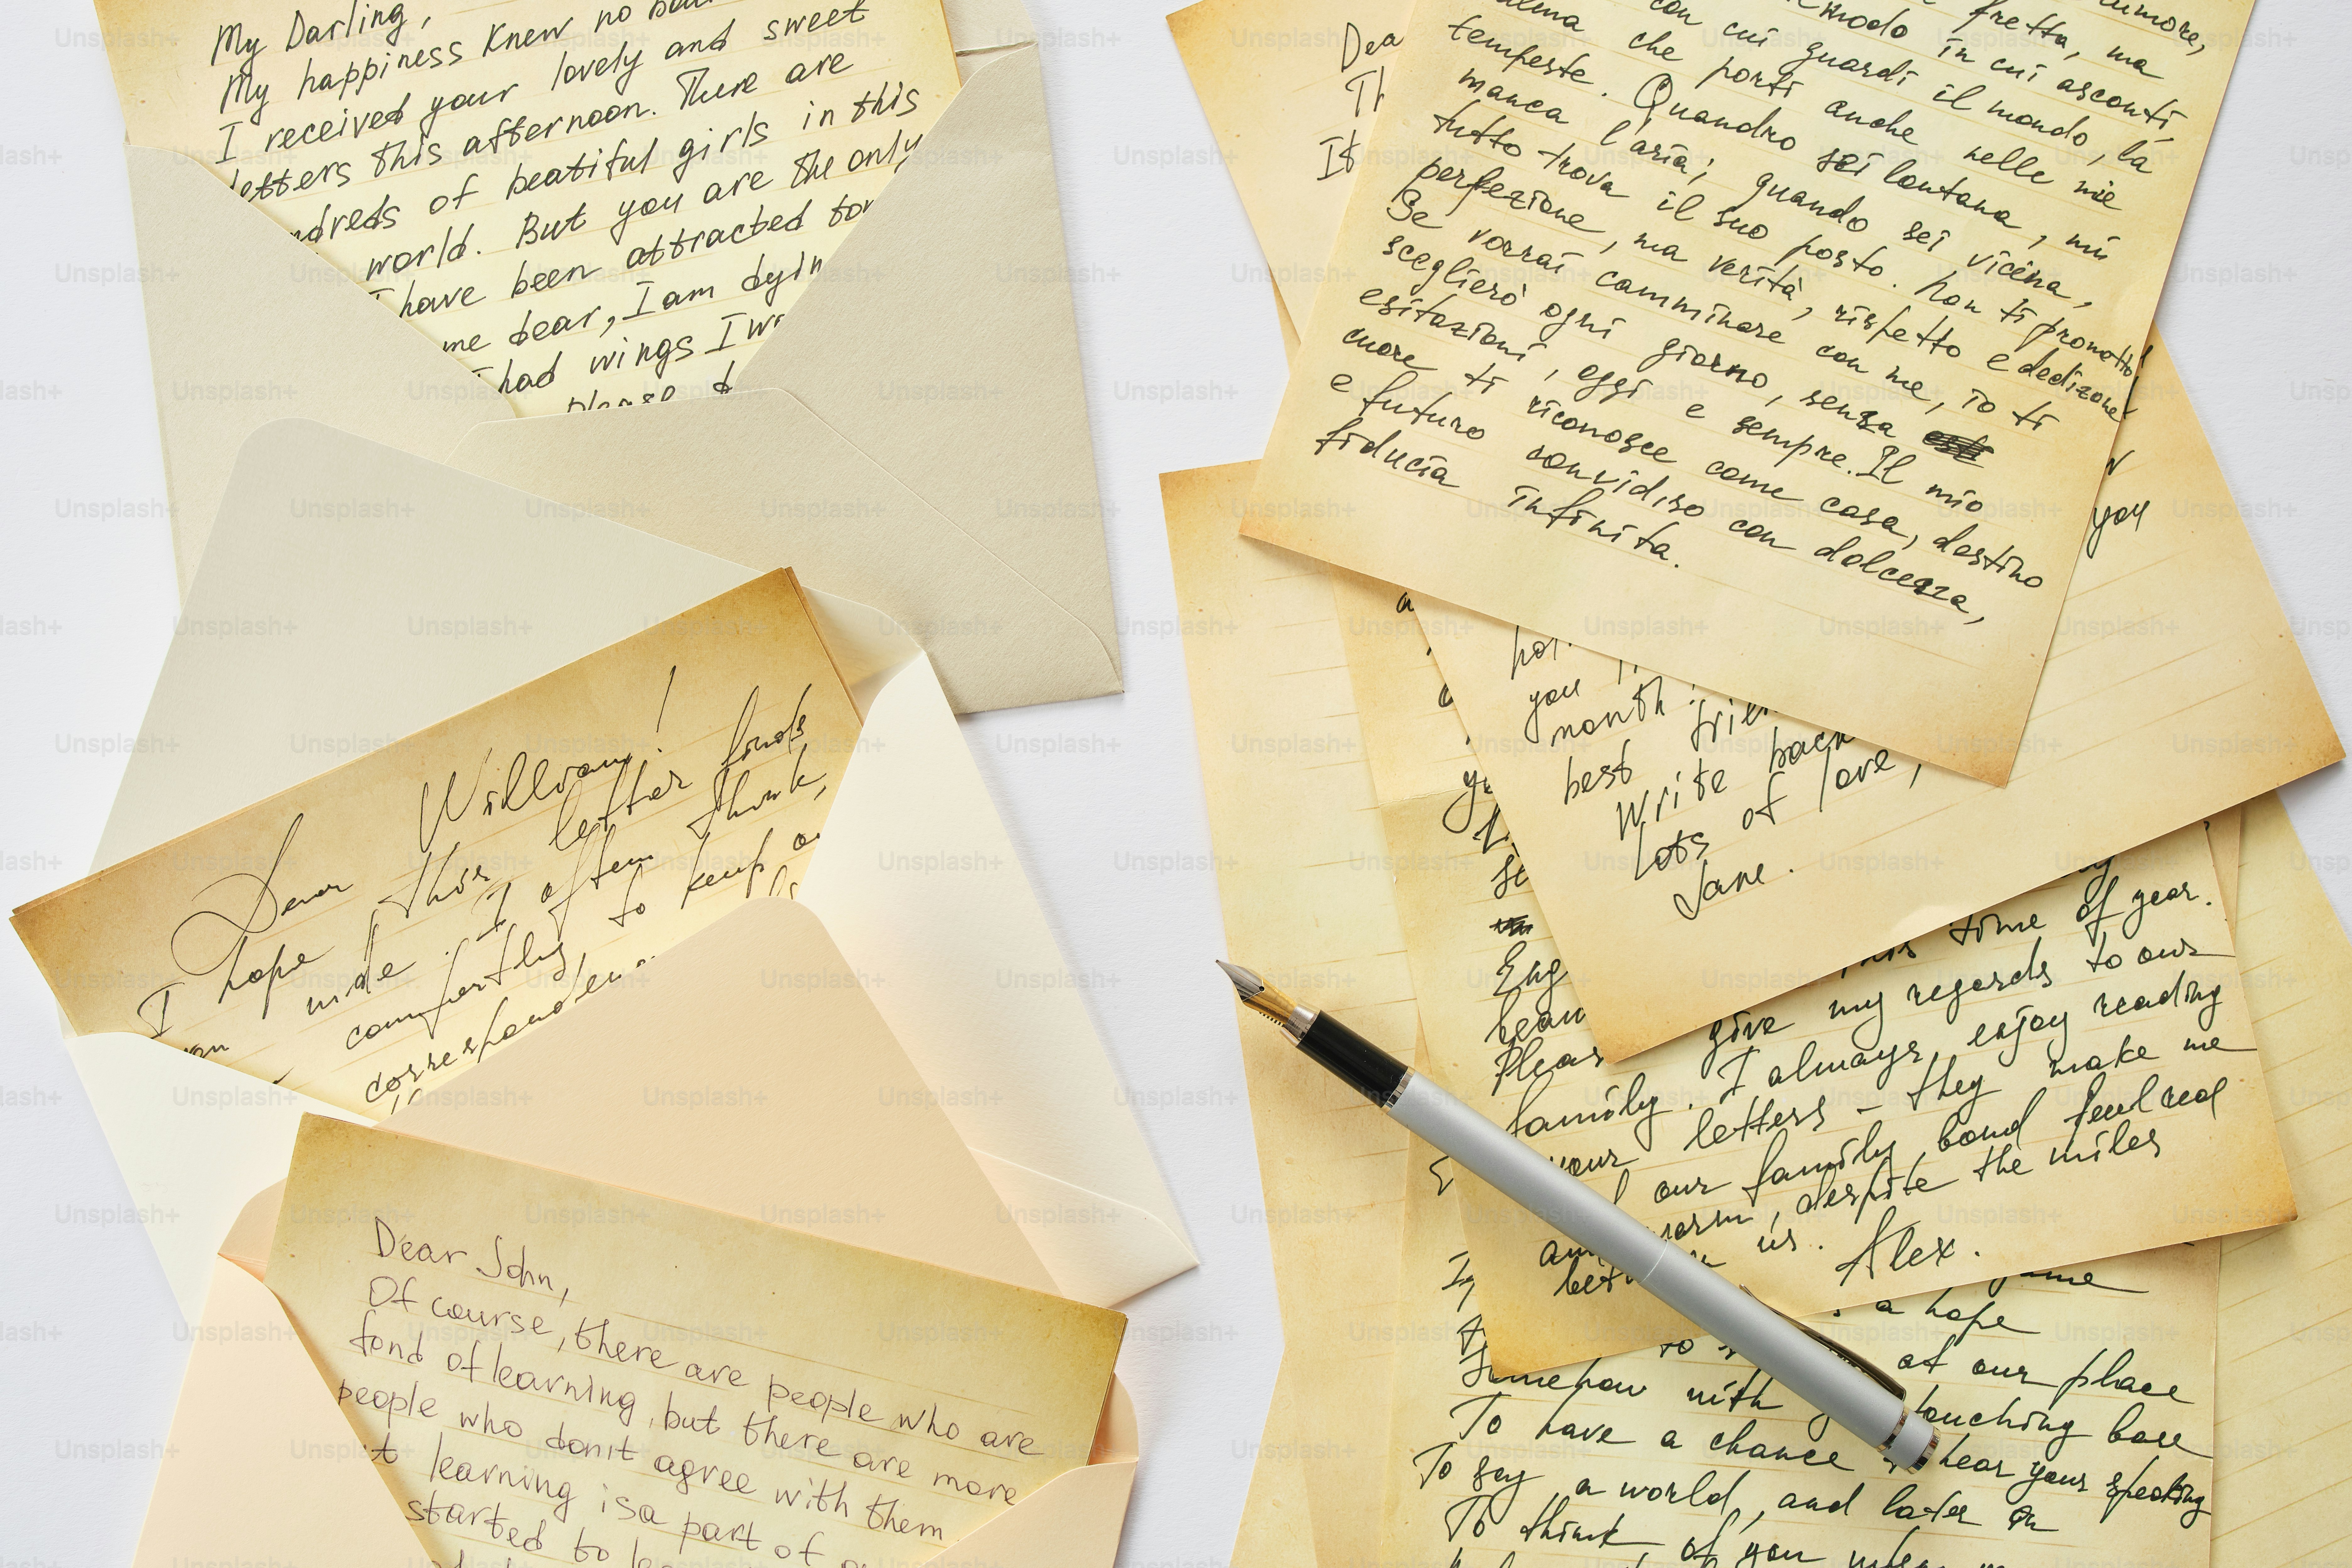 My Darling,
My happiness knew no
I received your lovely and sweet
letters this afternoon. There are
ndreds of beatiful girls in this
world. But you are the only
I have been attracted to
me dear, I am dyin
had wings I
please
Dear William!
I hope this letter finds
I often think,
comfortly, to keep
corresponden
Dear John,
Of course, there are people who are
fond of learning, but there are more
people who don't agree with them
t learning is a part of
started to
Dea
Th
It
umore,
fretta, ma
modo in cui ascolti,
con cui guardi il mondo, la
che porti anche nelle mie
tempeste. Quandro sei lontana, mi
manca l'aria; quando sei vicina,
tutto trova il suo posto. Non ti prometto
perfezione, ma verità, rispetto e dedizone!
Se vorrai camminare con me, io ti
sceglierò ogni giorno, senza
esitazioni, oggi e sempre. Il mio
cuore ti riconosce come casa, destino
e futuro condiviso con dolcezza,
fiducia infinita.
you
you
month
best
Write back
Lots of love,
Jane.
Eng
Pleas
this time of year.
give my regards to our
family. I always enjoy reading
your letters – they make me
our family bond
, despite the miles
us.
Alex.
a hope
to at our place
Somehow with touching base
To have a chance hear your speaking
To say a world, and later on
To think of you when